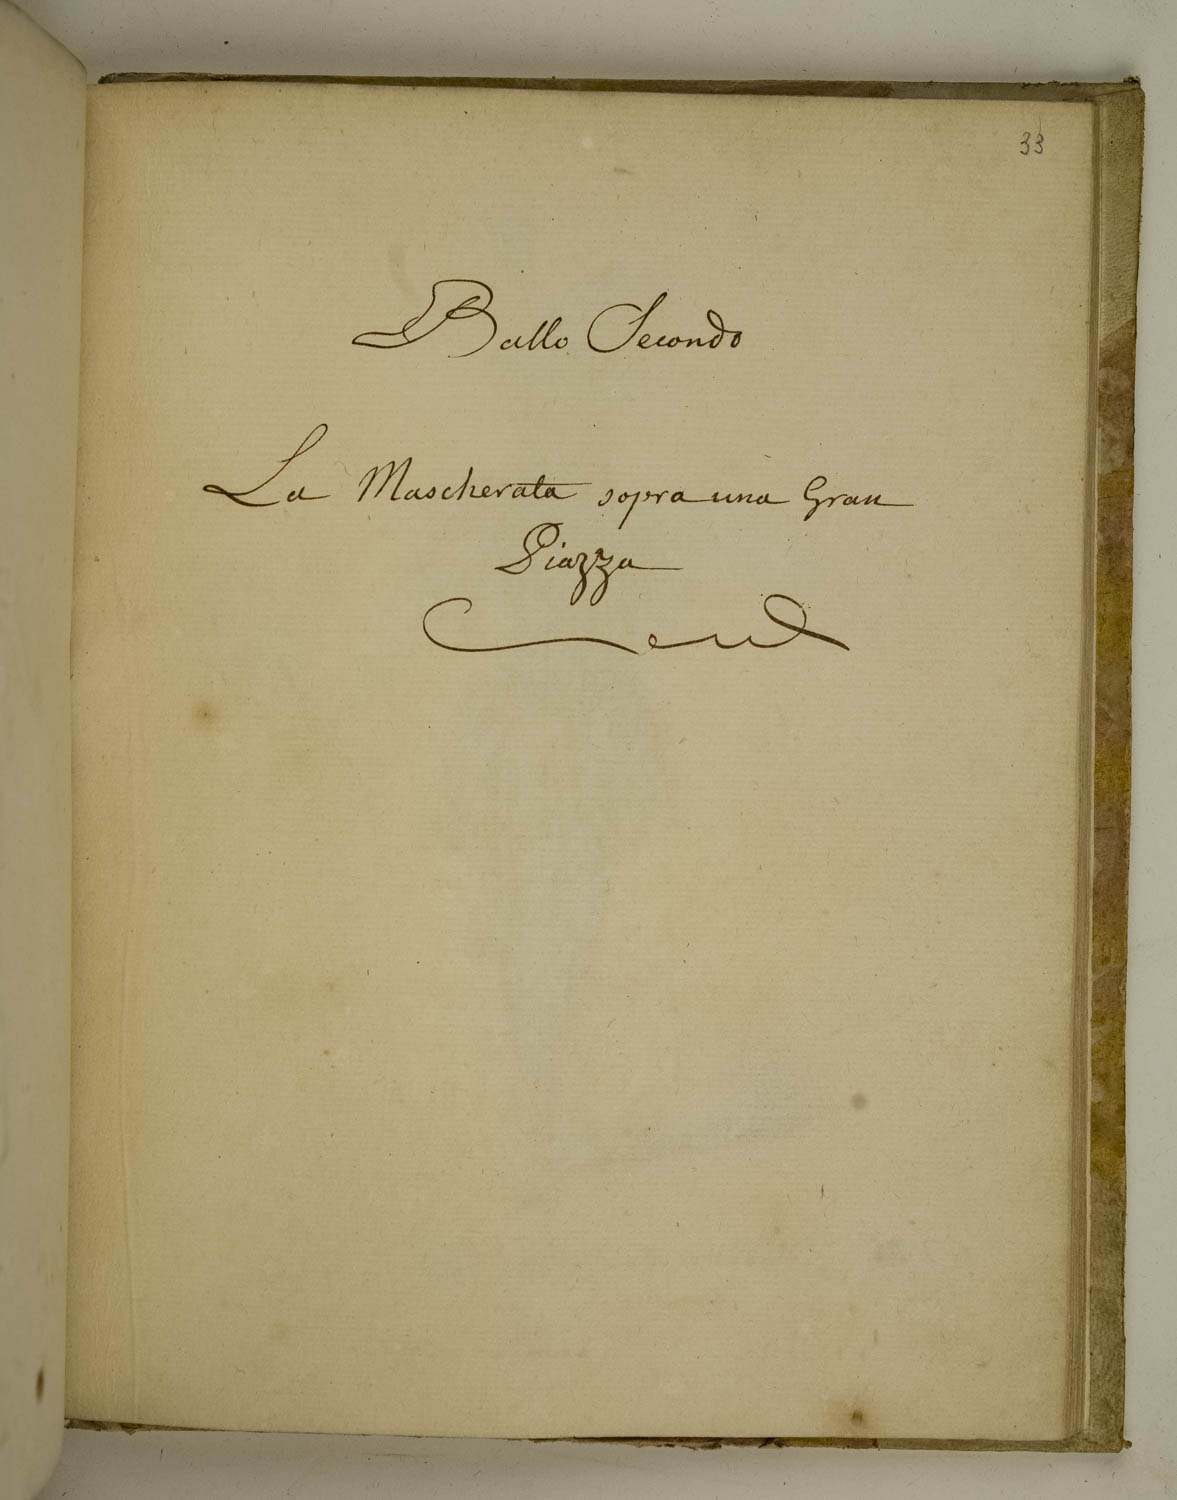 33
Ballo Secondo
La Mascherata sopra una Gran
Piazza